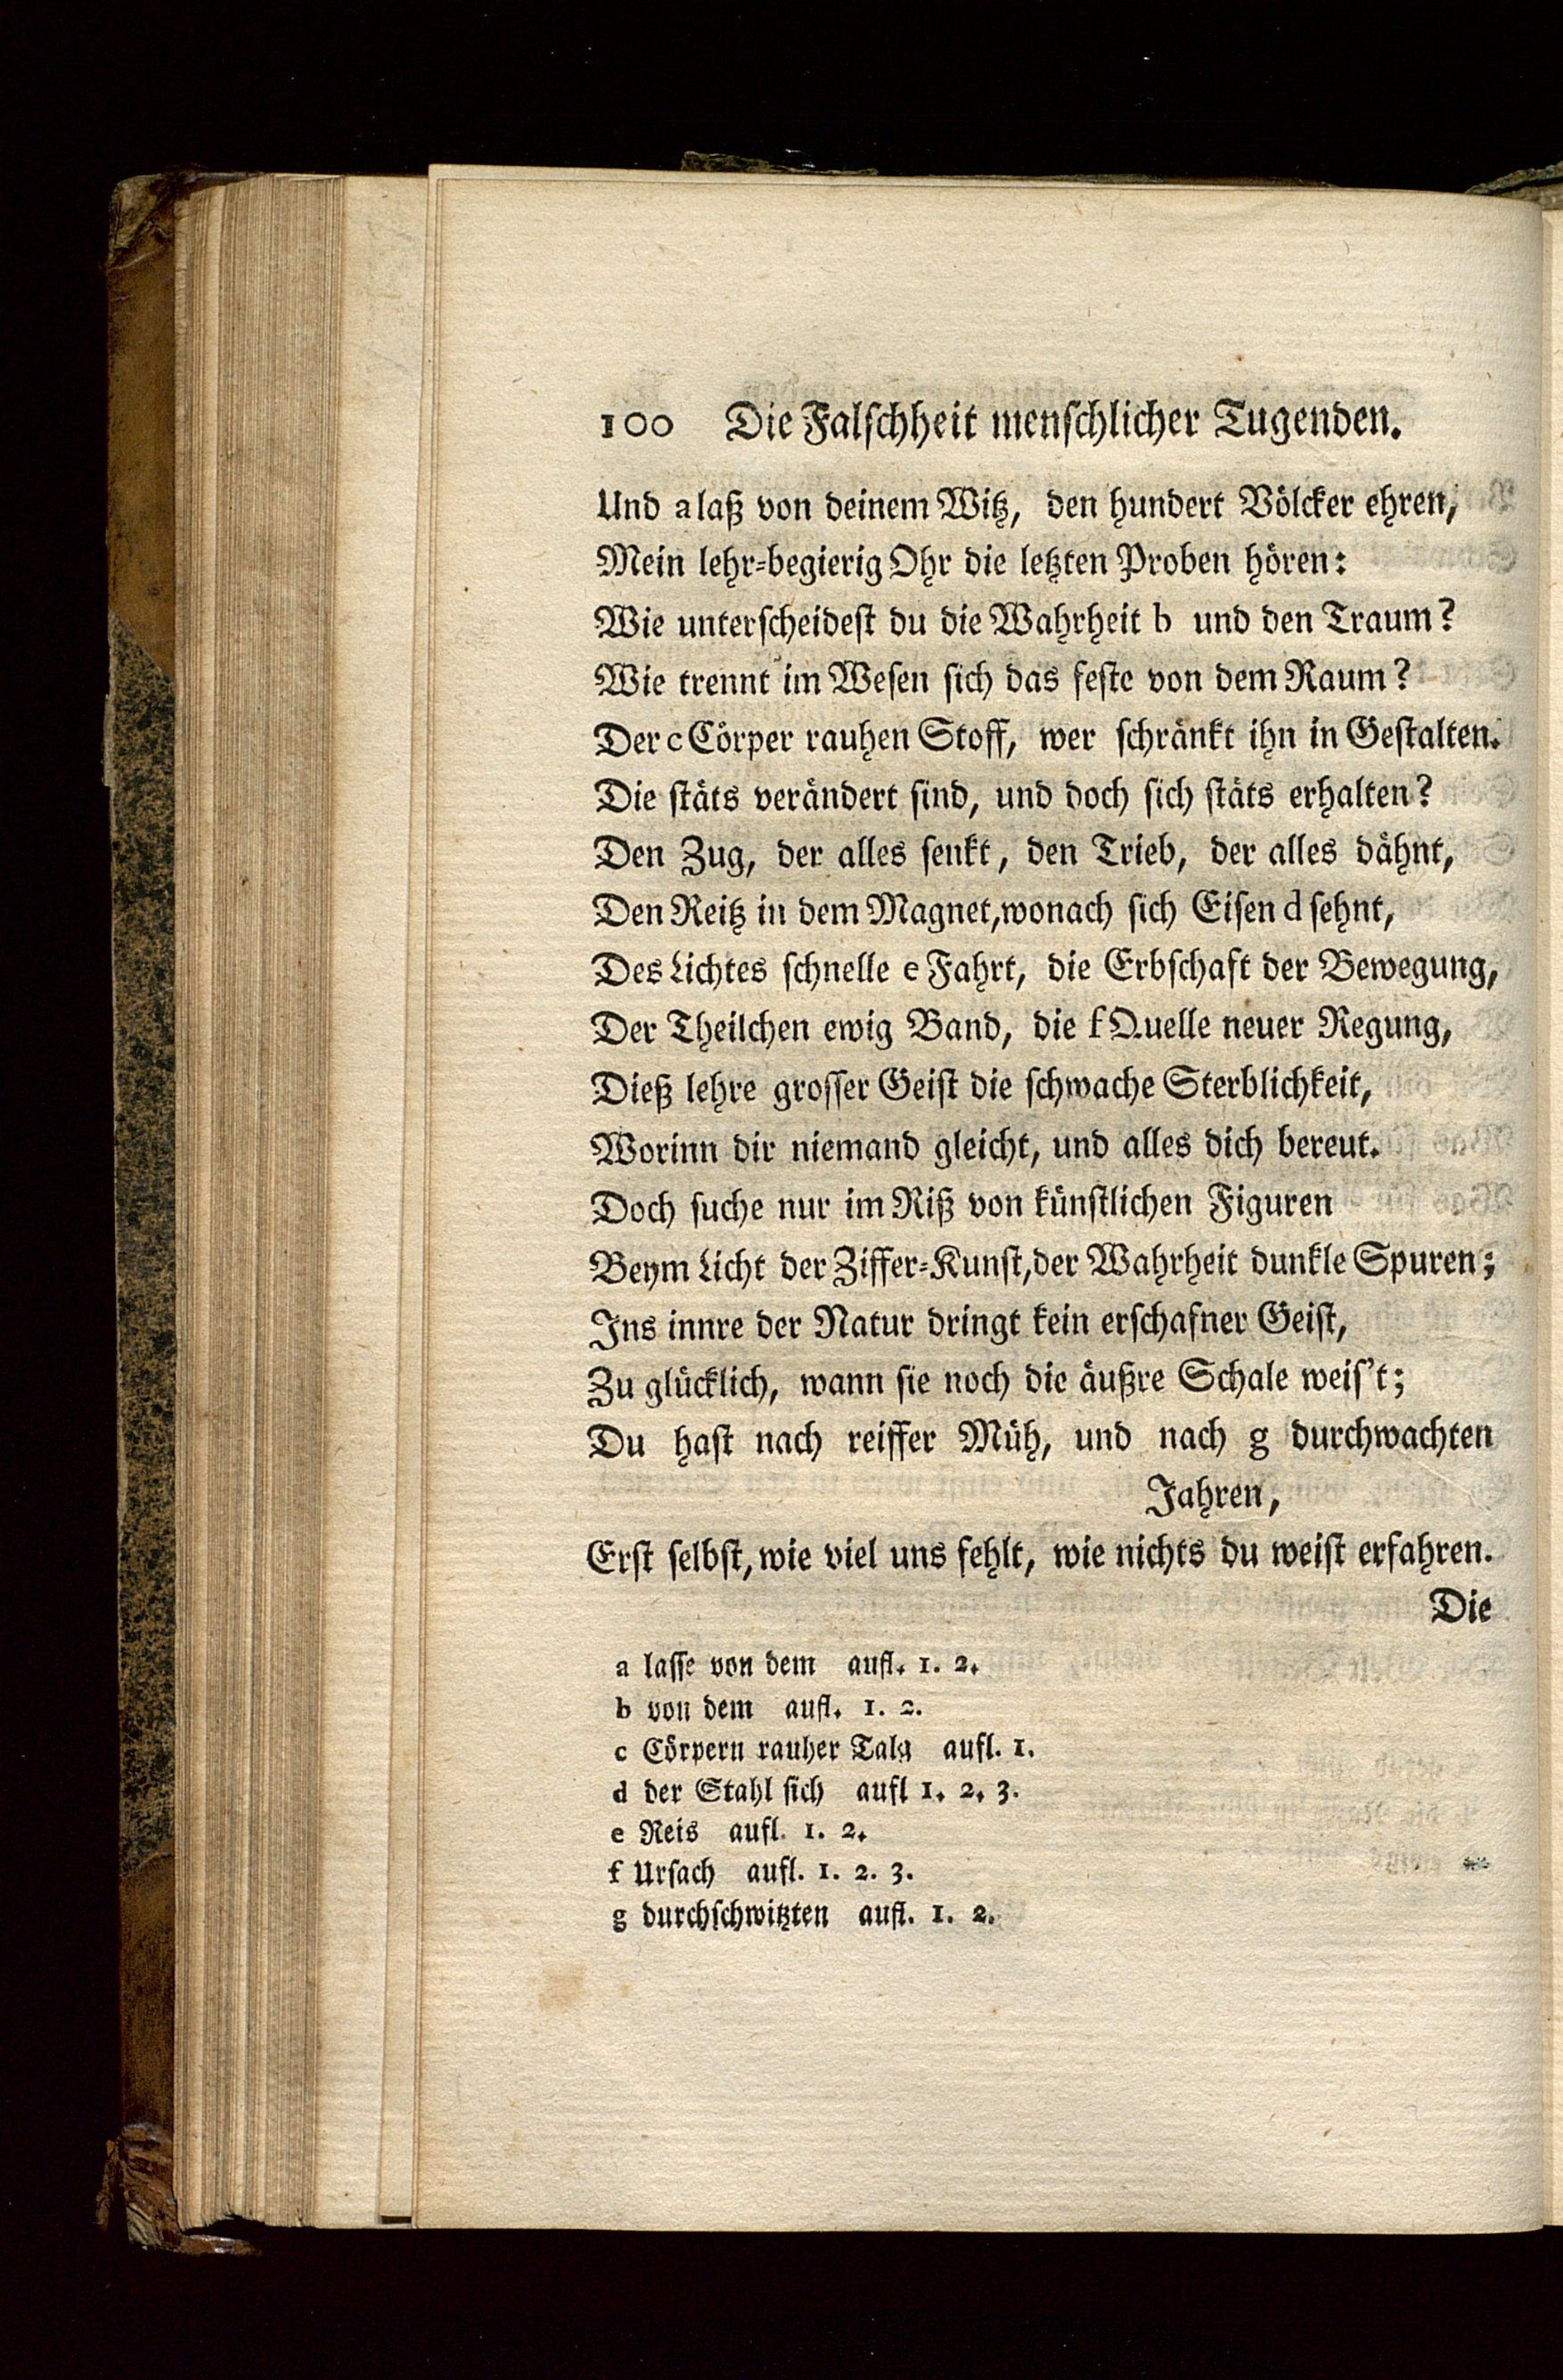 100 Die Falschheit menschlicher Tugenden.
Und a laß von deinem Witz, den hundert Völcker ehren,
Mein lehr-begierig Ohr die letzten Proben hören:
Wie unterscheidest du die Wahrheit b und den Traum?
Wie trennt im Wesen sich das feste von dem Raum?
Der c Cörper rauhen Stoff, wer schränkt ihn in Gestalten.
Die stäts verändert sind, und doch sich stäts erhalten?
Den Zug, der alles senkt, den Trieb, der alles dähnt,
Den Reitz in dem Magnet, wonach sich Eisen d sehnt,
Des Lichtes schnelle e Fahrt, die Erbschaft der Bewegung,
Der Theilchen ewig Band, die f Quelle neuer Regung,
Dieß lehre grosser Geist die schwache Sterblichkeit,
Worinn dir niemand gleicht, und alles dich bereut.
Doch suche nur im Riß von künstlichen Figuren
Beym Licht der Ziffer-Kunst, der Wahrheit dunkle Spuren;
Ins innre der Natur dringt kein erschafner Geist,
Zu glücklich, wann sie noch die äußre Schale weis't;
Du hast nach reiffer Müh, und nach g durchwachten
Jahren,
Erst selbst, wie viel uns fehlt, wie nichts du weist erfahren.
Die
a lasse von dem aufl. 1. 2.
b von dem aufl. 1. 2.
c Cörpern rauher Talg aufl. 1.
d der Stahl sich aufl 1. 2. 3.
e Reis aufl. 1. 2.
f Ursach aufl. 1. 2. 3.
g durchschwitzten aufl. 1. 2.